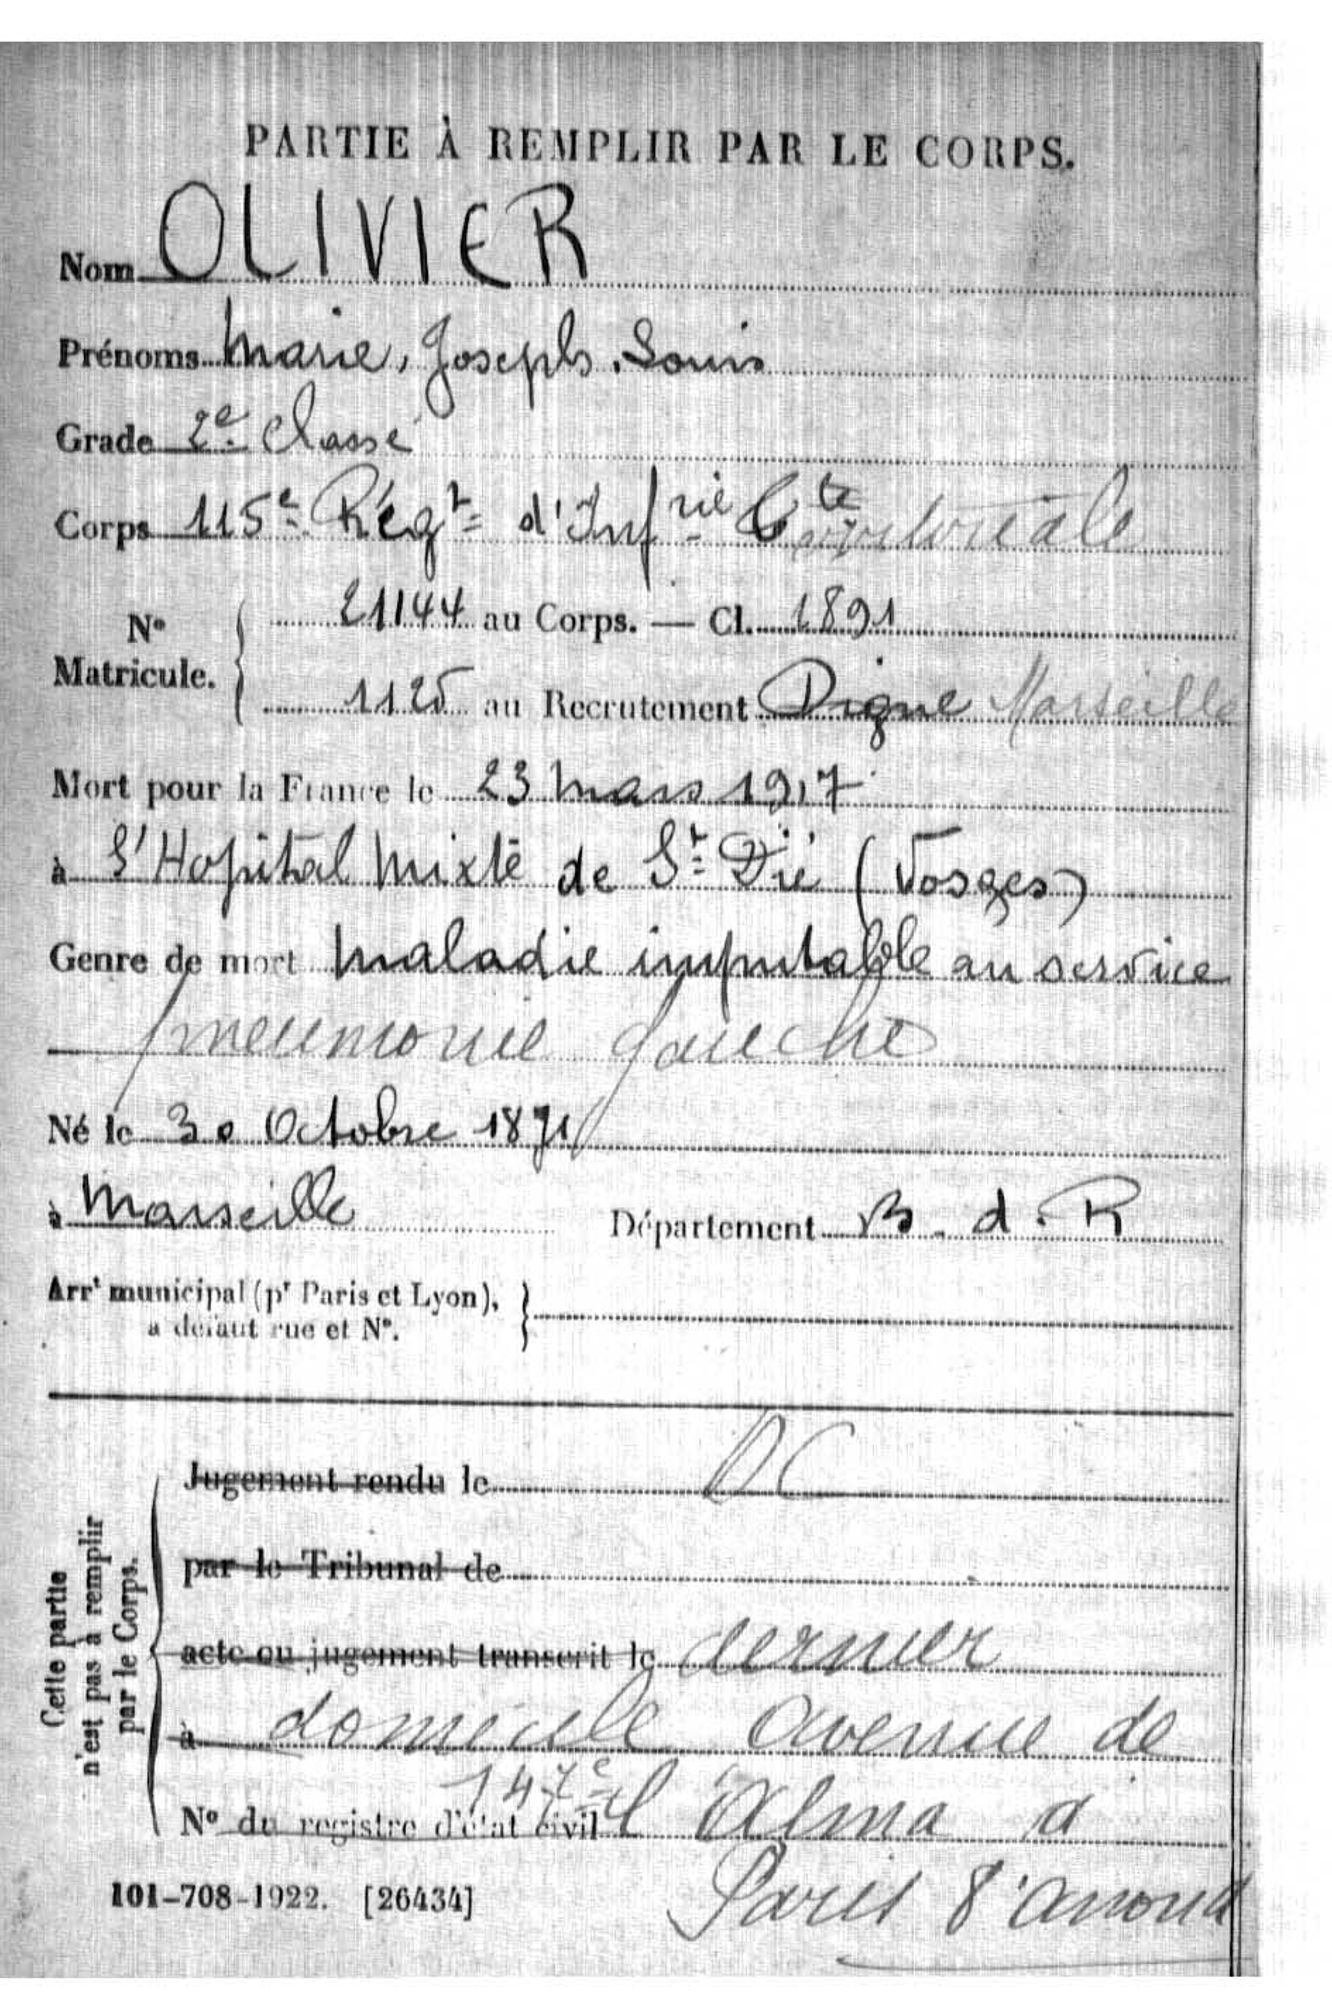 PARTIE À REMPLIR PAR LE CORPS.
Nom OLIVIER
Prénoms Marie, Joseph, Louis
Grade 2e Classe
Corps 115e Régt d'Infrie tale
N° Matricule. 21144 au Corps. — Cl. 1891
1125 au Recrutement Digne Marseille
Mort pour la France le 23 Mars 1917
à l'Hopital Mixte de St Dié (Vosges)
Genre de mort Maladie imputable au service
pneumonie gauche
Né le 30 Octobre 1871
à Marseille Département B. d. R
Arrt municipal (pr Paris et Lyon),
à défaut rue et N°.
Cette partie
n'est pas à remplir
par le Corps.
Jugement rendu le DC
par le Tribunal de
acte ou jugement transcrit le dernier
à domicile avenue de
147e
N° du registre d'état civil l'Alma à
Paris 8e
101-708-1922. [26434]